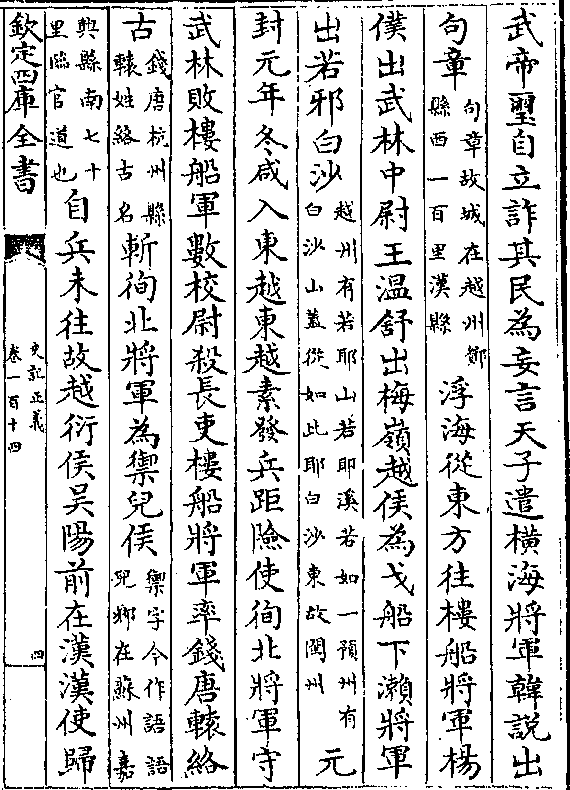 武帝璽自立詐其民為妄言天子遣橫海將軍韓說出
句章句章故城在越州鄮縣西一百里漢縣浮海從東方往樓船將軍楊
僕出武林中尉王溫舒出梅嶺越侯為戈船下瀨將軍
出若邪白沙越州有若耶山若耶溪若如一預州有白沙山蓋從如此耶白沙東故閩州元
封元年冬咸入東越東越素發兵距險使徇北將軍守
武林敗樓船軍數校尉殺長吏樓船將軍率錢唐轅終
古錢唐杭州縣轅姓終古名斬徇北將軍為禦兒侯禦字今作語語兒鄉在蘇州嘉
興縣南七十里臨官道也自兵未往故越衍侯吳陽前在漢漢使歸
欽定四庫全書
史記正義
卷一百十四
四